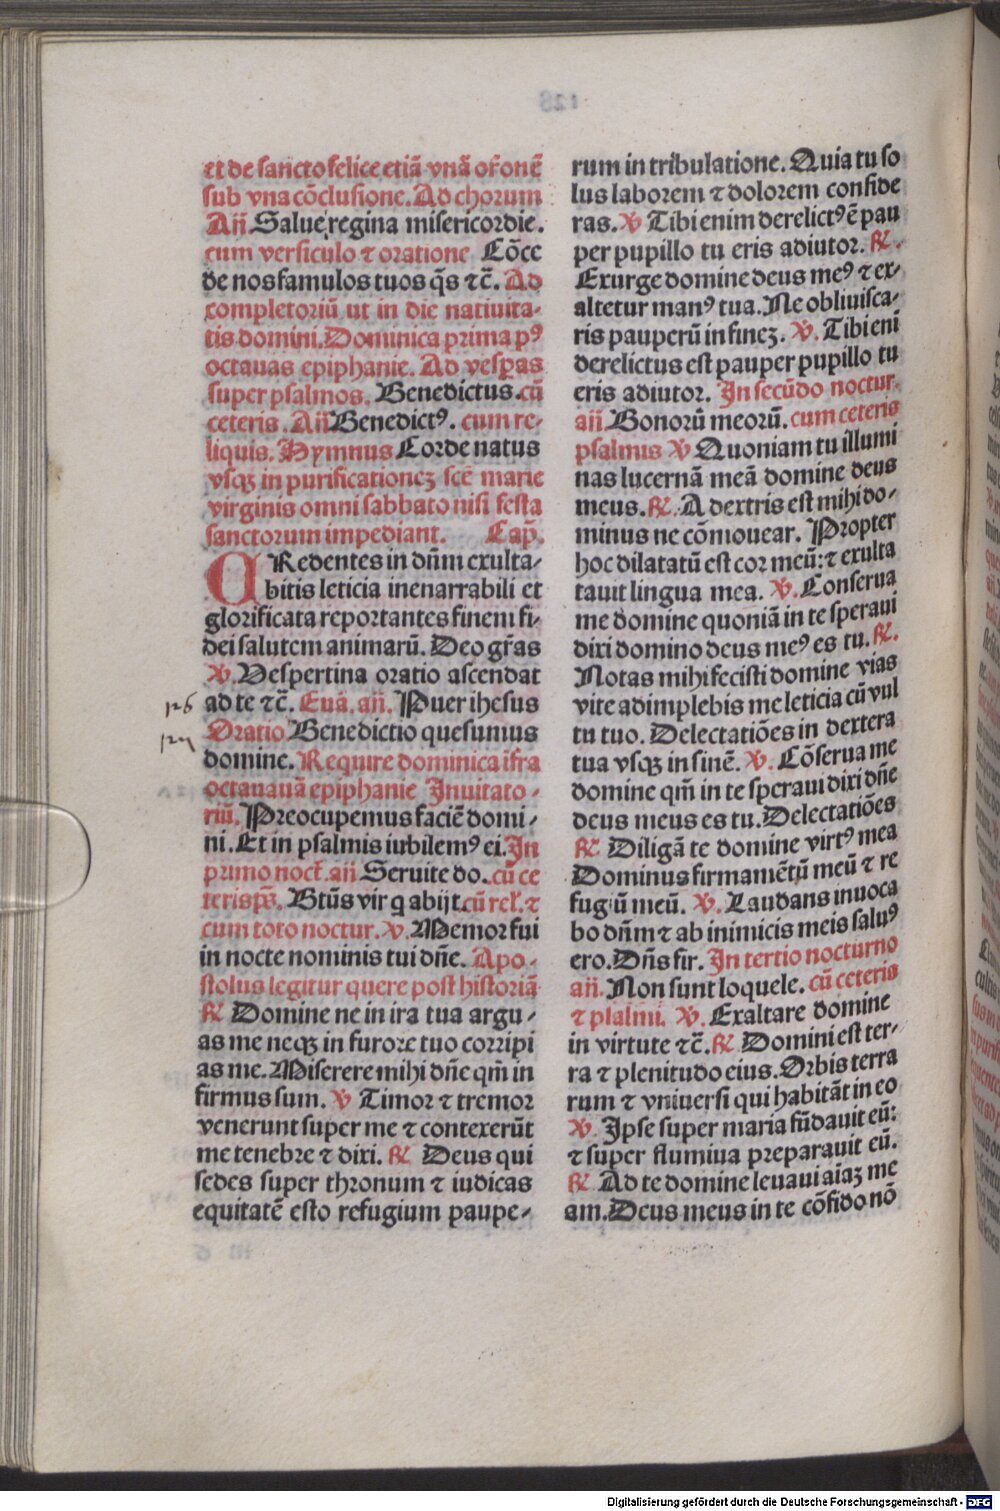 et de sancto felice etiā vnā or̄onē
sub vna cōclusione. Ad chorum
An̄ Salue regina misericordie.
cum versiculo ⁊ oratione Cōce
de nos famulos tuos q̄s ⁊c̄. Ad
completoriū ut in die natiuita⸗
tis domini. Dominica prima pꝰ
octauas epiphanie. Ad vesperas
super psalmos. Benedictus. cū
ceteris. An̄ Benedictꝰ. cum re⸗
liquis. Hymnus Corde natus
vsqꝫ in purificationeꝫ scē marie
virginis omni sabbato nisi festa
sanctorum impediant. Cap̄.
CRedentes in dn̄m exulta⸗
bitis leticia inenarrabili et
glorificata reportantes finem fi⸗
dei salutem animarū. Deo gr̄as
℣. Vespertina oratio ascendat
126
ad te ⁊c̄. Euā. an̄. Puer ihesus
Oratio. Benedictio quesumus
domine. Require dominica īfra
octauauā epiphanie Inuitato⸗
riū. Preocupemus faciē domi⸗
ni. Et in psalmis iubilemꝰ ei. In
primo noct̄. an̄ Seruite do. cū ce
teris ps̄. Bt̄us vir q abijt. cū rel̄. ⁊
cum toto noctur. ℣. Memor fui
in nocte nominis tui dn̄e. Apo⸗
stolus legitur quere post historiā
℟ Domine ne in ira tua argu⸗
as me neqꝫ in furore tuo corripi
as me. Miserere mihi dn̄e qm̄ in
firmus sum. ℣ Timor ⁊ tremor
venerunt super me ⁊ contexerūt
me tenebre ⁊ dixi. ℟ Deus qui
sedes super thronum ⁊ iudicas
equitatē esto refugium paupe⸗
rum in tribulatione. Quia tu so
lus laborem ⁊ dolorem confide
ras. ℣ Tibi enim derelictꝰ ē pau
per pupillo tu eris adiutor. ℟.
Exurge domine deus meꝰ ⁊ ex⸗
altetur manꝰ tua. Ne obliuisca⸗
ris pauperū in fineꝫ. ℣. Tibi enī
derelictus est pauper pupillo tu
eris adiutor. In secūdo noctur.
an̄. Bonorū meorū. cum ceteris
psalmis ℣ Quoniam tu illumi
nas lucernā meā domine deus
meus. ℟. A dextris est mihi do⸗
minus ne cōmouear. Propter
hoc dilatatū est cor meū: ⁊ exulta
tauit lingua mea. ℣. Conserua
me domine quoniā in te speraui
dixi domino deus meꝰ es tu. ℟.
Notas mihi fecisti domine vias
vite adimplebis me leticia cū vul
tu tuo. Delectatiōes in dextera
tua vsqꝫ in sinē. ℣. Cōserua me
domine qm̄ in te speraui dixi dn̄e
deus meus es tu. Delectatiōes
℟ Diligā te domine virtꝰ mea
Dominus firmamētū meū ⁊ re
fugiū meū. ℣. Laudans inuoca
bo dn̄m ⁊ ab inimicis meis saluꝰ
ero. Dn̄s fir. In tertio nocturno
an̄. Non sunt loquele. cū ceteris
⁊ plalmi. ℣. Exaltare domine
in virtute ⁊c̄. ℟ Domini est ter⸗
ra ⁊ plenitudo eius. Orbis terra
rum ⁊ vniuersi qui habitāt in eo
℣. Ipse super maria fūdauit eū:
⁊ super flumiua preparauit eū.
℟ Ad te domine leuaui aiaꝫ me
am. Deus meus in te cōfido nō
Digitalisierung gefördert durch die Deutsche Forschungsgemeinschaft - DFG